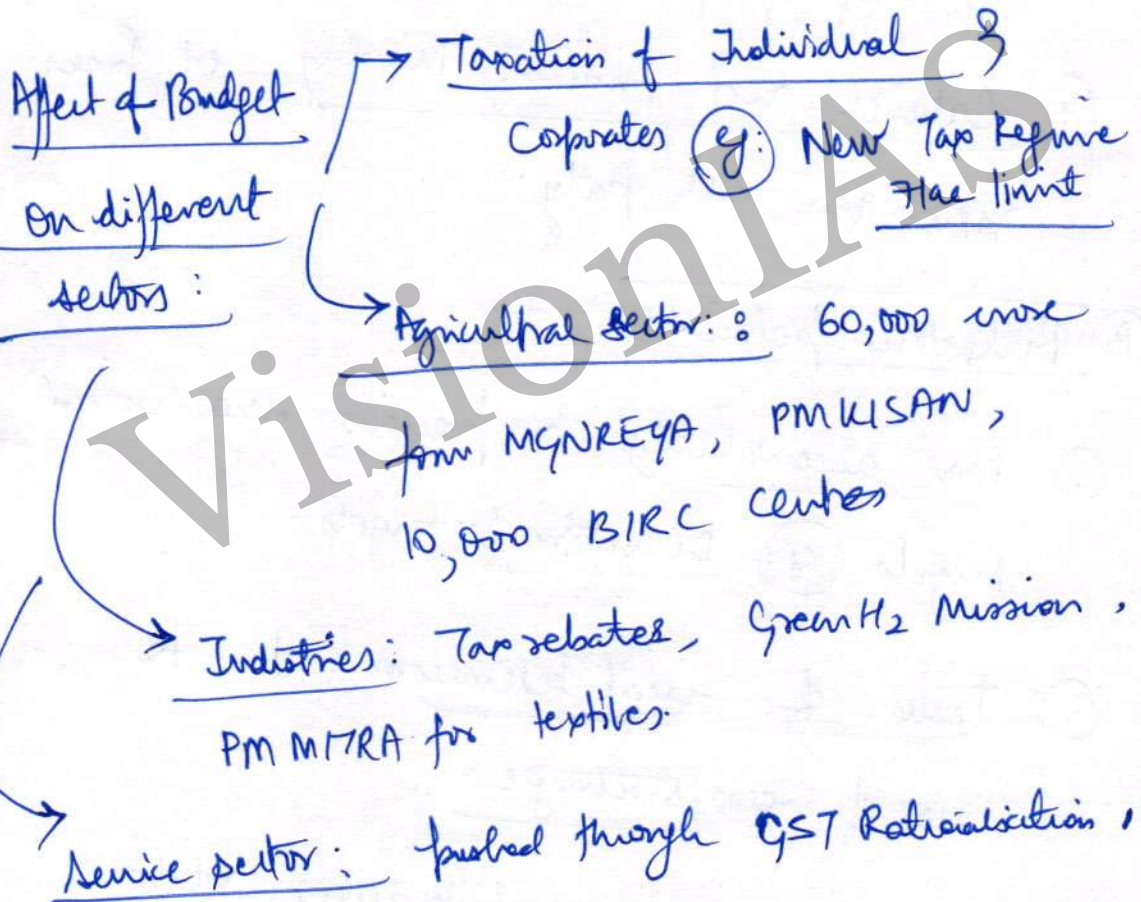 Affect of Budget
on different
sectors :
Taxation of Individual &
Corporates eg: New Tax Regime
7 lac limit
Agricultural sector: : 60,000 crore
from MGNREGA, PMKISAN,
10,000 BIRC centres
Industries: Tax rebates, Green H2 Mission,
PM MITRA for textiles.
Service sector: pushed through GST Rationalisation,
VisionIAS